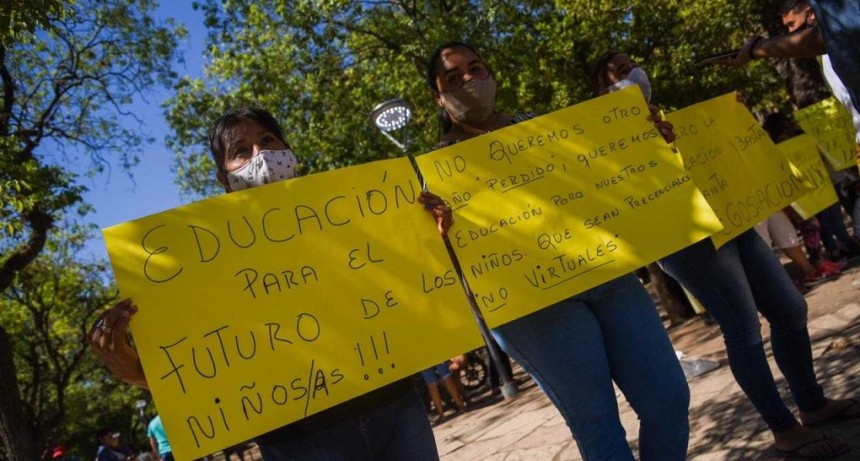 EDUCACIÓN
PARA EL
FUTURO DE LOS
NIÑOS/AS !!!
NO QUEREMOS OTRO
AÑO "PERDIDO", QUEREMOS
EDUCACIÓN PARA NUESTROS
NIÑOS. QUE SEAN PRECENCIALES
NO VIRTUALES.
LA
BASTA